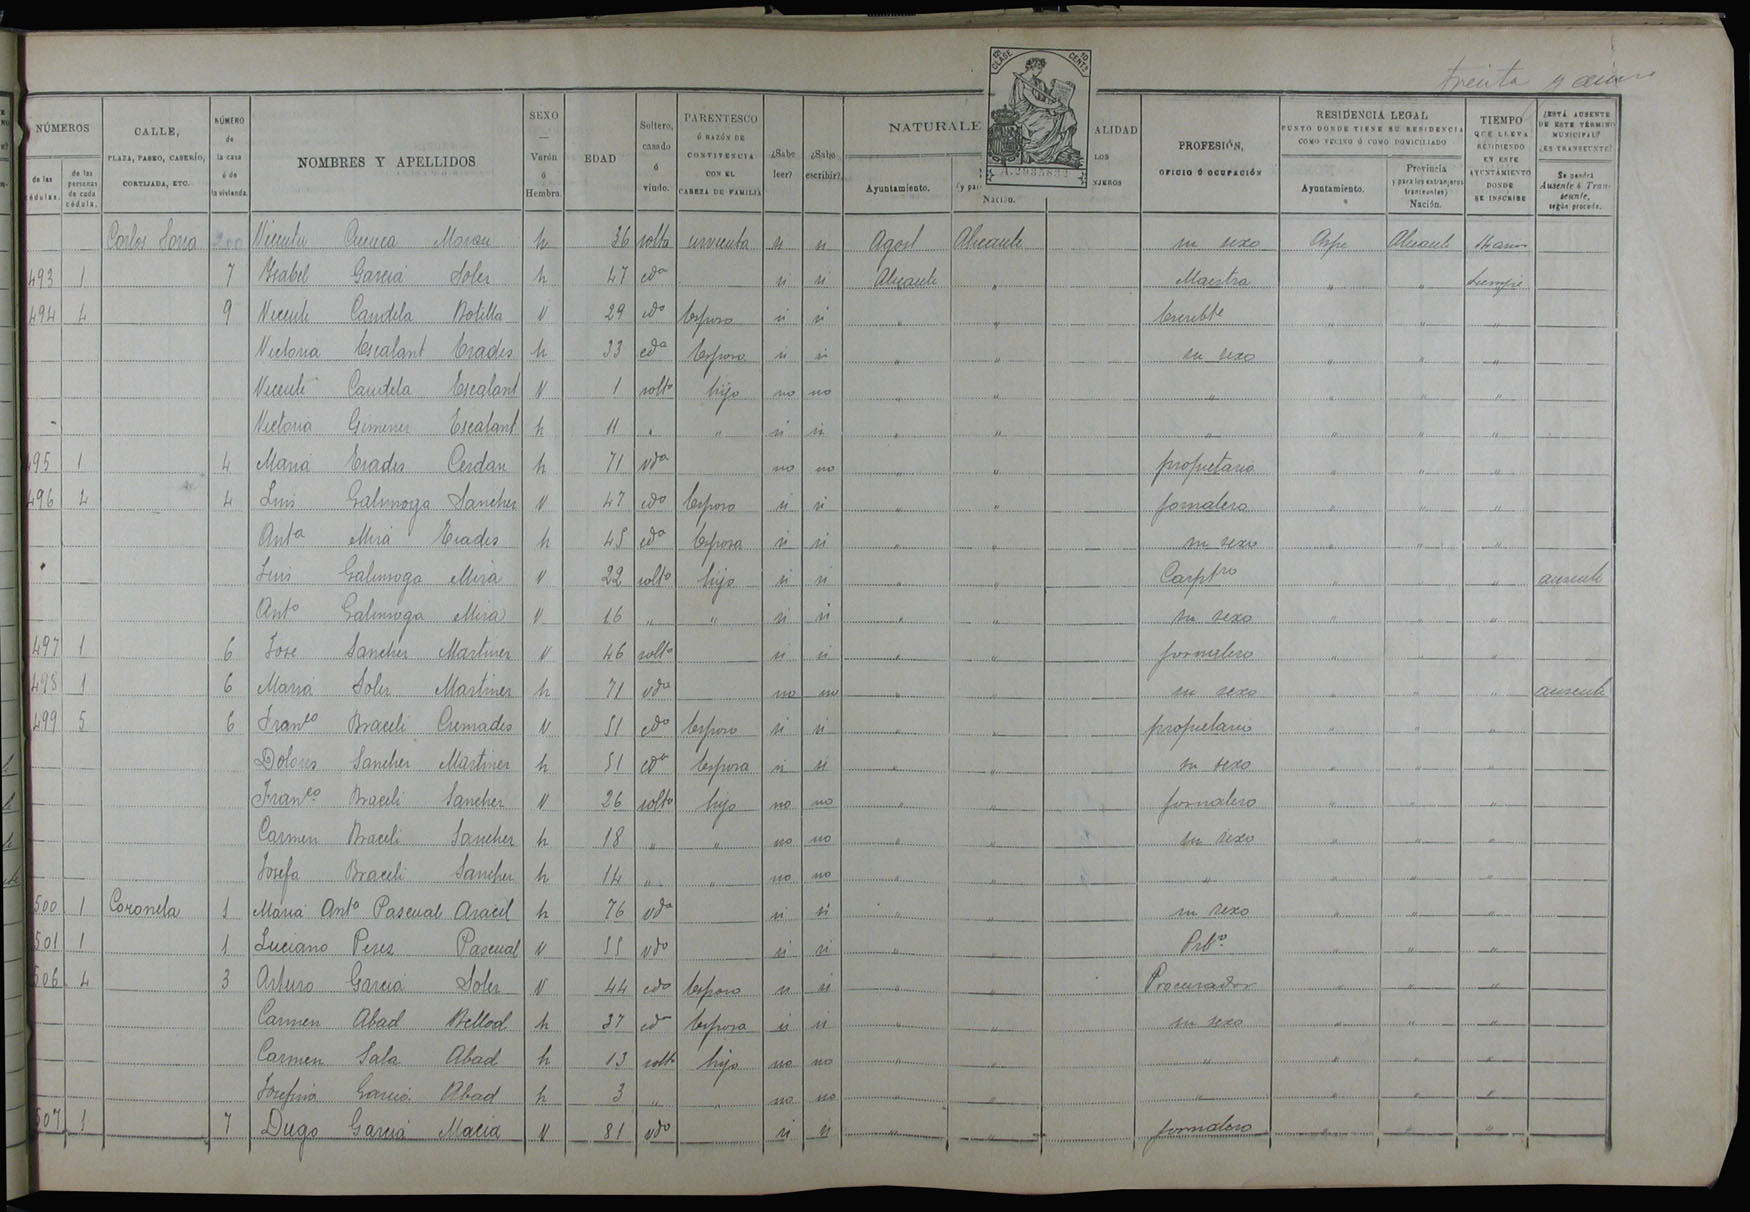 treinta y cinco
10ª CLASE 10 CENTS
A.2935832
NÚMEROS
de las cédulas.
de las personas de cada cédula.
CALLE,
PLAZA, PASEO, CASERÍO,
CORTIJADA, ETC.
NÚMERO
de
la casa
ó de
la vivienda.
NOMBRES Y APELLIDOS
SEXO
Varón
ó
Hembra.
EDAD
Soltero,
casado
ó
viudo.
PARENTESCO
Ó RAZÓN DE
CONVIVENCIA
CON EL
CABEZA DE FAMILIA
¿Sabe
leer?
¿Sabe
escribir?
NATURALE
ALIDAD
LOS
NJEROS
Ayuntamiento.
(y par
Nación.
PROFESIÓN,
OFICIO Ó OCUPACIÓN
RESIDENCIA LEGAL
PUNTO DONDE TIENE SU RESIDENCIA
COMO VECINO Ó COMO DOMICILIADO
Ayuntamiento.
Provincia
(y para los extranjeros
transeuntes)
Nación.
TIEMPO
QUE LLEVA
RESIDIENDO
EN ESTE
AYUNTAMIENTO
DONDE
SE INSCRIBE
¿ESTÁ AUSENTE
DE ESTE TÉRMINO
MUNICIPAL?
¿ES TRANSEUNTE?
Se pondrá
Ausente ó Tran-
seunte,
según proceda.
Carlos Soria Vicenta Cuenca h 36 solta sirvienta si si Agost Alicante su sexo Aspe Alicante
493 1 7 Ysabel Garcia Soler h 47 cda si si Alicante " Maestra " " siempre
494 4 9 Vicente Candela Botella V 29 cdo Esposo si si " " Escribte " " "
Victoria Escalant Erades h 33 cda Esposa si si " " su sexo " " "
Vicente Candela Escalant V 1 solto hijo no no " " " " " "
Victoria Gimenez Escalant h 11 " " si si " " " " " "
495 1 4 Maria Erades Cerdan h 71 vda no no " " propietaria " " "
496 4 4 Luis Galinsoga Sanchez V 47 cdo Esposo si si " " jornalero " " "
Anta Mira Erades h 45 cda Esposa si si " " su sexo " " "
Luis Galinsoga Mira V 22 solto hijo si si " " Carptro " " " ausente
Anto Galinsoga Mira V 16 " " si si " " su sexo " " "
497 1 6 Jose Sanchez Martinez V 46 solto si si " " jornalero " " "
498 1 6 Maria Soler Martinez h 71 vda no no " " su sexo " " " ausente
499 5 6 Franco Braceli Cremades V 51 cdo Esposo si si " " propietario " " "
Dolores Sanchez Martinez h 51 cda Esposa si si " " su sexo " " "
Franco Braceli Sanchez V 26 solto hijo no no " " jornalero " " "
Carmen Braceli Sanchez h 18 " " no no " " su sexo " " "
Josefa Braceli Sanchez h 14 " " no no " " " " " "
500 1 Coroneta 1 Maria Anta Pascual Aracil h 76 vda si si " " su sexo " " "
501 1 1 Luciano Perez Pascual V 55 vdo si si " " Prbo " " "
506 4 3 Arturo Garcia Soler V 44 cdo Esposo si si " " Procurador " " "
Carmen Abad Bellod h 37 cda Esposa si si " " su sexo " " "
Carmen Sala Abad h 13 solta hijo no no " " " " " "
Josefina Garcia Abad h 3 " " no no " " " " " "
507 1 7 Diego Garcia Macia V 81 vdo si si " " jornalero " " "